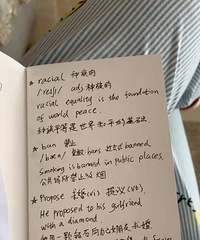 ★ racial 种族的
/reɪʃl/ adj. 种族的
racial equality is the foundation
of world peace.
种族平等是世界和平的基石
★ ban 禁止
/bæn/ bans banned
smoking is banned in public places.
公共场所禁止吸烟
★ Propose 求婚(vi.) 提议(vt.)
He proposed to his girlfriend
with a diamond.